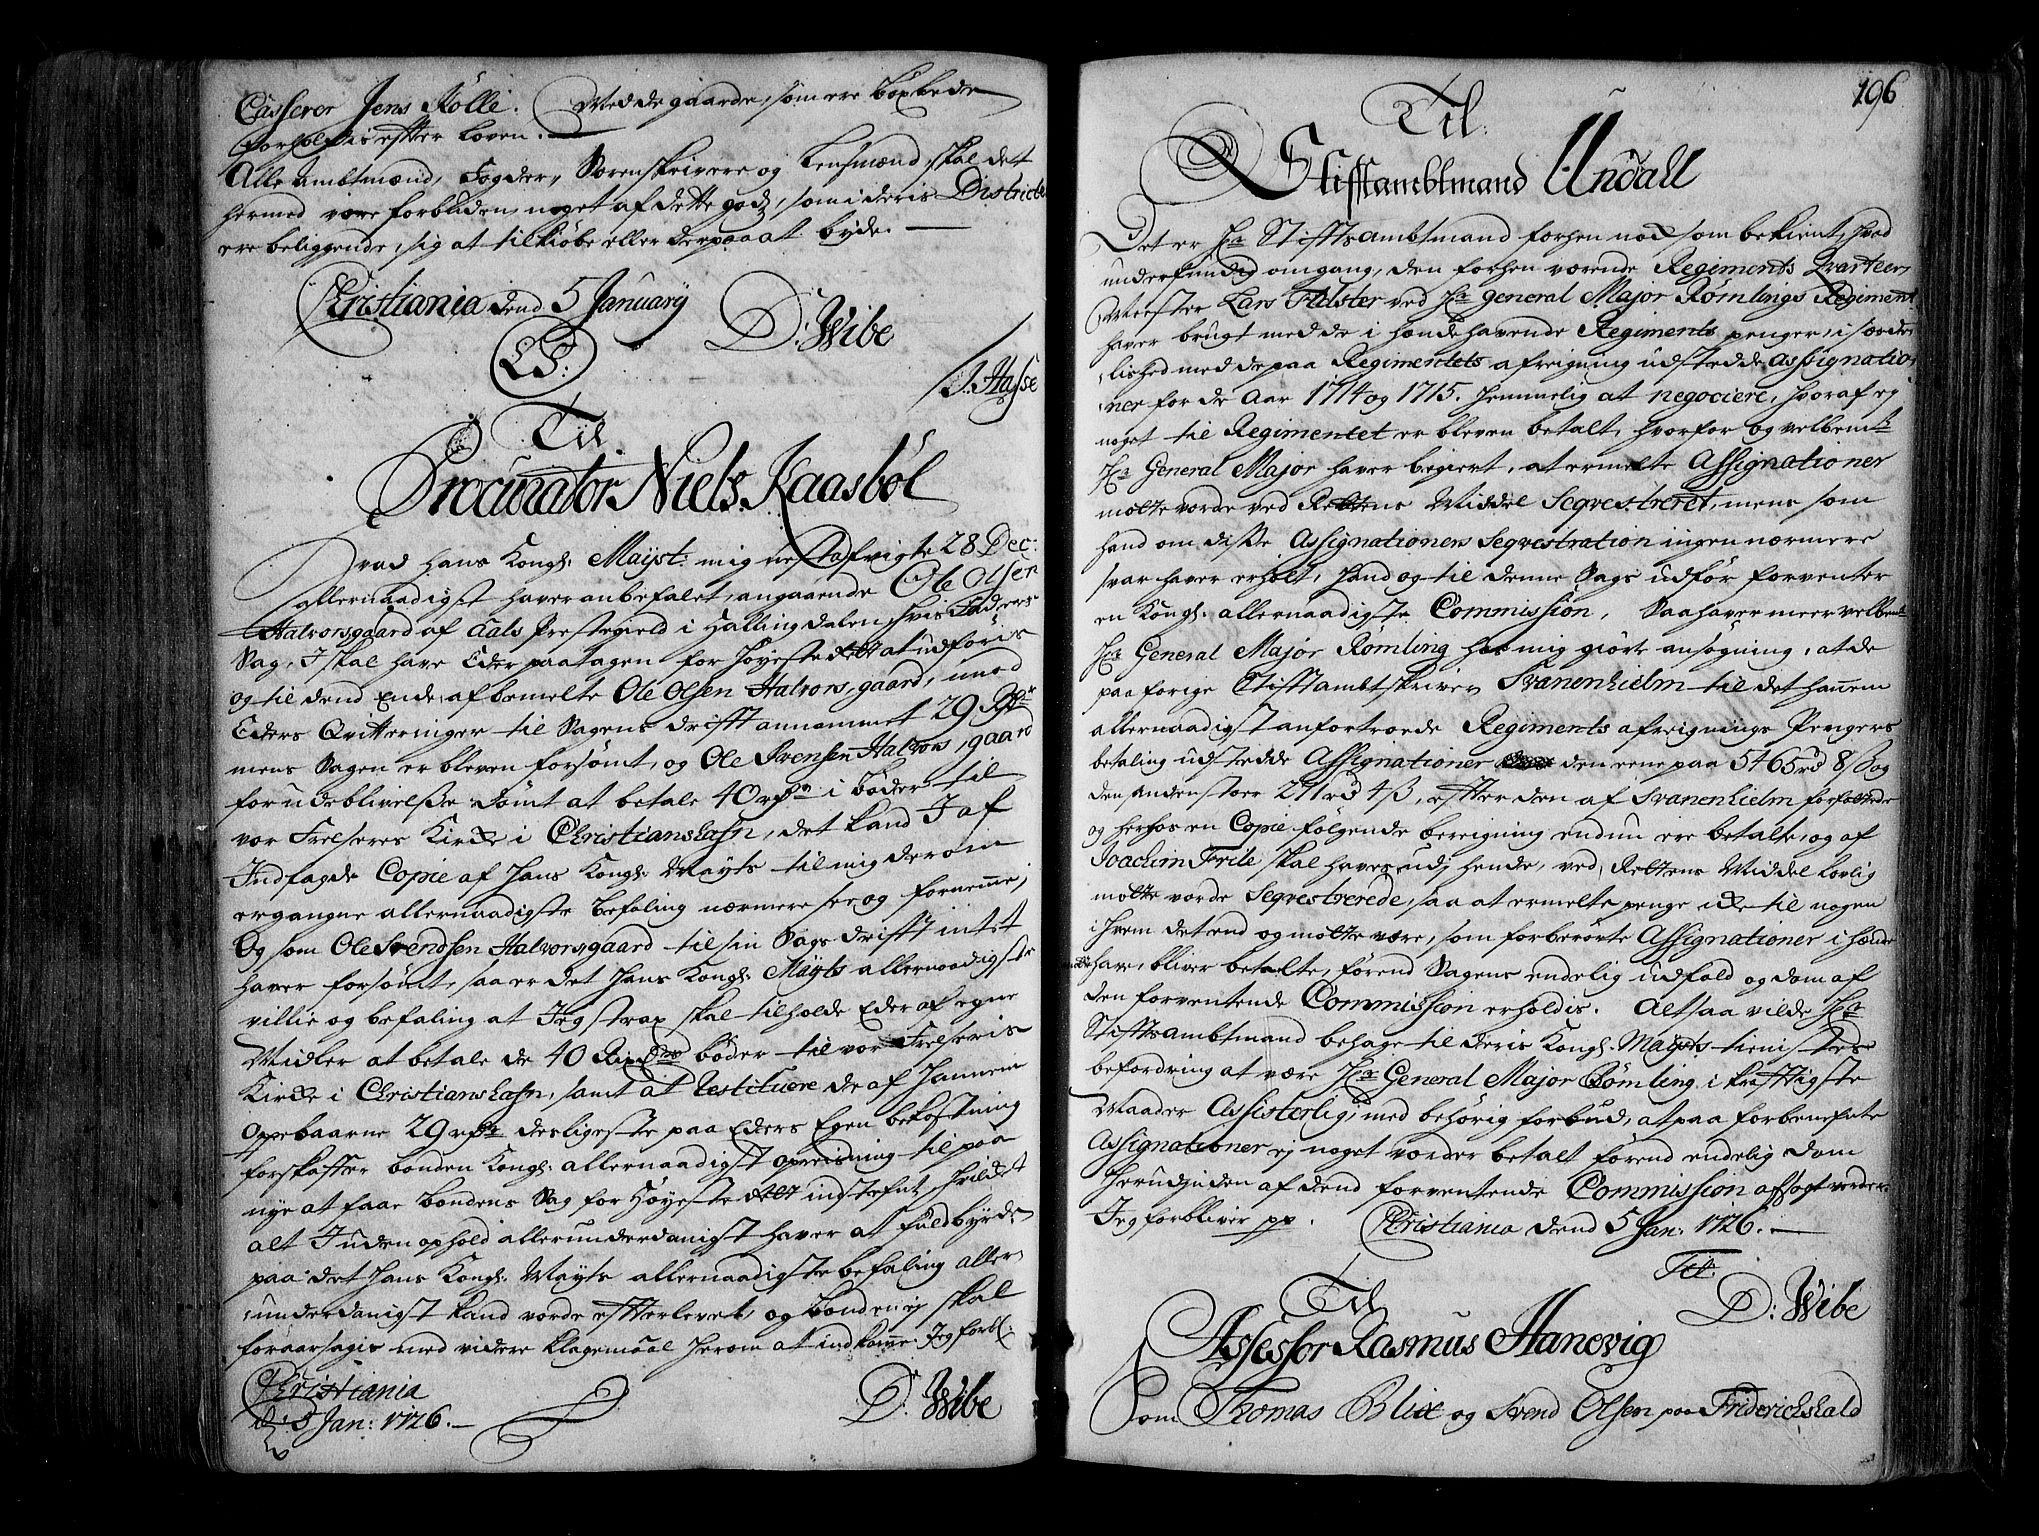 Casserer Jens Kølle. Medde gaarde, som ere
Forholdis effter Loven.
Alle Ambtmænd, Fogder, Sorenskrivere og Lensmænd, skal det
hermed være forbuden, noget af dette godz, som i deris District
ere beliggende, sig at tilkiøbe eller derpaa at byde.
Christiania dend 5 January
LS.
D: Wibe
J. Hasse
Til
Procurator Niels Kaasbøl
Hvad Hans Kongl: Mayst: mig nest afvigte 28 Dec:
allernaadigst haver anbefalet, angaaende Ole Olsen
Halvorsgaard af Aals Prestegield i Hallingdalen, hvis Faders
Sag, I skal have Eder paatagen for Høyeste Rett at udføris
og til dend Ende, af bemelte Ole Olsen Halvors,gaard, mod
Eders Qvitteringer til Sagens drifft annammet 29 Rdr
mens Sagen er bleven forsømt, og Ole Svensen Halvors,gaard
for udeblivelse dømt at betale 40 rdr i bøder til
vor Frelseres Kirche i Christianshafn, det kand I af
Indlagde Copie af Hans Kongl: Mayts til mig derom
ergangne allernaadigste befaling nærmere see og fornemme;
Og som Ole Svendsen Halvorsgaard til sin Sags drifft intet
haver forsømt, saa er det Hans Kongl: Mayts allernaadigste
villie og befaling at Jeg strax skal tilholde Eder af egne
Midler at betale de 40 Rixdlr bøder til vor Frelseris
Kirche i Christianshafn, samt at restituere de af Hannem
oppebaarne 29 rdr desligeste paa Eders Egen bekostning
forskaffer bonden Kongl: allernaadigst opreisning til paa
nye at faae bondens Sag for Høyeste Rett indstefnt, hvilket
alt I uden ophold allerunderdanigst haver at fuldbyrde
paa det Hans Kongl: Mayts allernaadigste befaling aller-
underdanigst kand vorde effterlevet, og bonden ej skal
foraarsagis med videre Klagemaal herom at indkomme. Jeg forbl:
Christiania
d: 5 Jan: 1726.
D: Wibe
196
Til
Stifftambtmand Undall
Det er Hr Stifftsambtmand forhen nock som bekient, hvad
underfundig omgang, den forhen værende Regiments Qvarteer
Meester Lars Filster ved Hr General Major Rømlings Regiment
haver brugt med de i hænde havende Regiments penger, i særde-
lished med de paa Regimentets afreigning udstedde Assignatio-
ner for de Aar 1714 og 1715. hemmelig at negociere, hvoraf ej
noget til Regimentet er bleven betalt, hvorfor og velbemte
Hr General Major haver begiert, at ermelte Assignationer
motte vorde ved Rettens Middel Seqvestreret, mens som
hand om disse Assignationers Seqvestration ingen nærmere
svar haver erholt, hand og til denne Sags udfør forventer
en Kongl: allernaadigste Commission, Saa haver meer velbemt
Hr General Major Rømling hos mig giort ansøgning, at de
paa forige Stifftambtskriver Svanenhielm til det hannem
allernaadigst anfortroede Regiments afreignings Pengers
betaling udstedde Assignationer den eene paa 5465 rd 8 ß og
den anden stoer 211 rd 4 ß, effter den af Svanenhielm forfattede
og herhos en Copie følgende bereigning endnu ere betalte, og af
Joachim Frile skal haves udj hende, ved Rettens Middel lovlig
motte vorde Seqvestrerede, saa at ermelte penge icke til nogen
i hvem det end og motte være, som forberørte Assignationer i hænde
have, bliver betalte, førend Sagens endelig udfald og dom af
den forventende Commission erholdis. Altsaa vilde Hr
Stifftsambtmand behage til deris Kongl: Mayts tienistes
befordring at være Hr General Major Rømling i krafftigste
Maader Assisterlig, med behørig forbud, at paa forbenefnte
Assignationer ej noget vorder betalt førend endelig dom
herudjinden af dend forventende Commission afsagt vorder.
Jeg forbliver pp. Christiania dend 5 Jan: 1726.
Tit:
D: Wibe
Til
Assessor Rasmus Hanevig
Som Thomas Blix og Svend Olsen paa Friderichshald